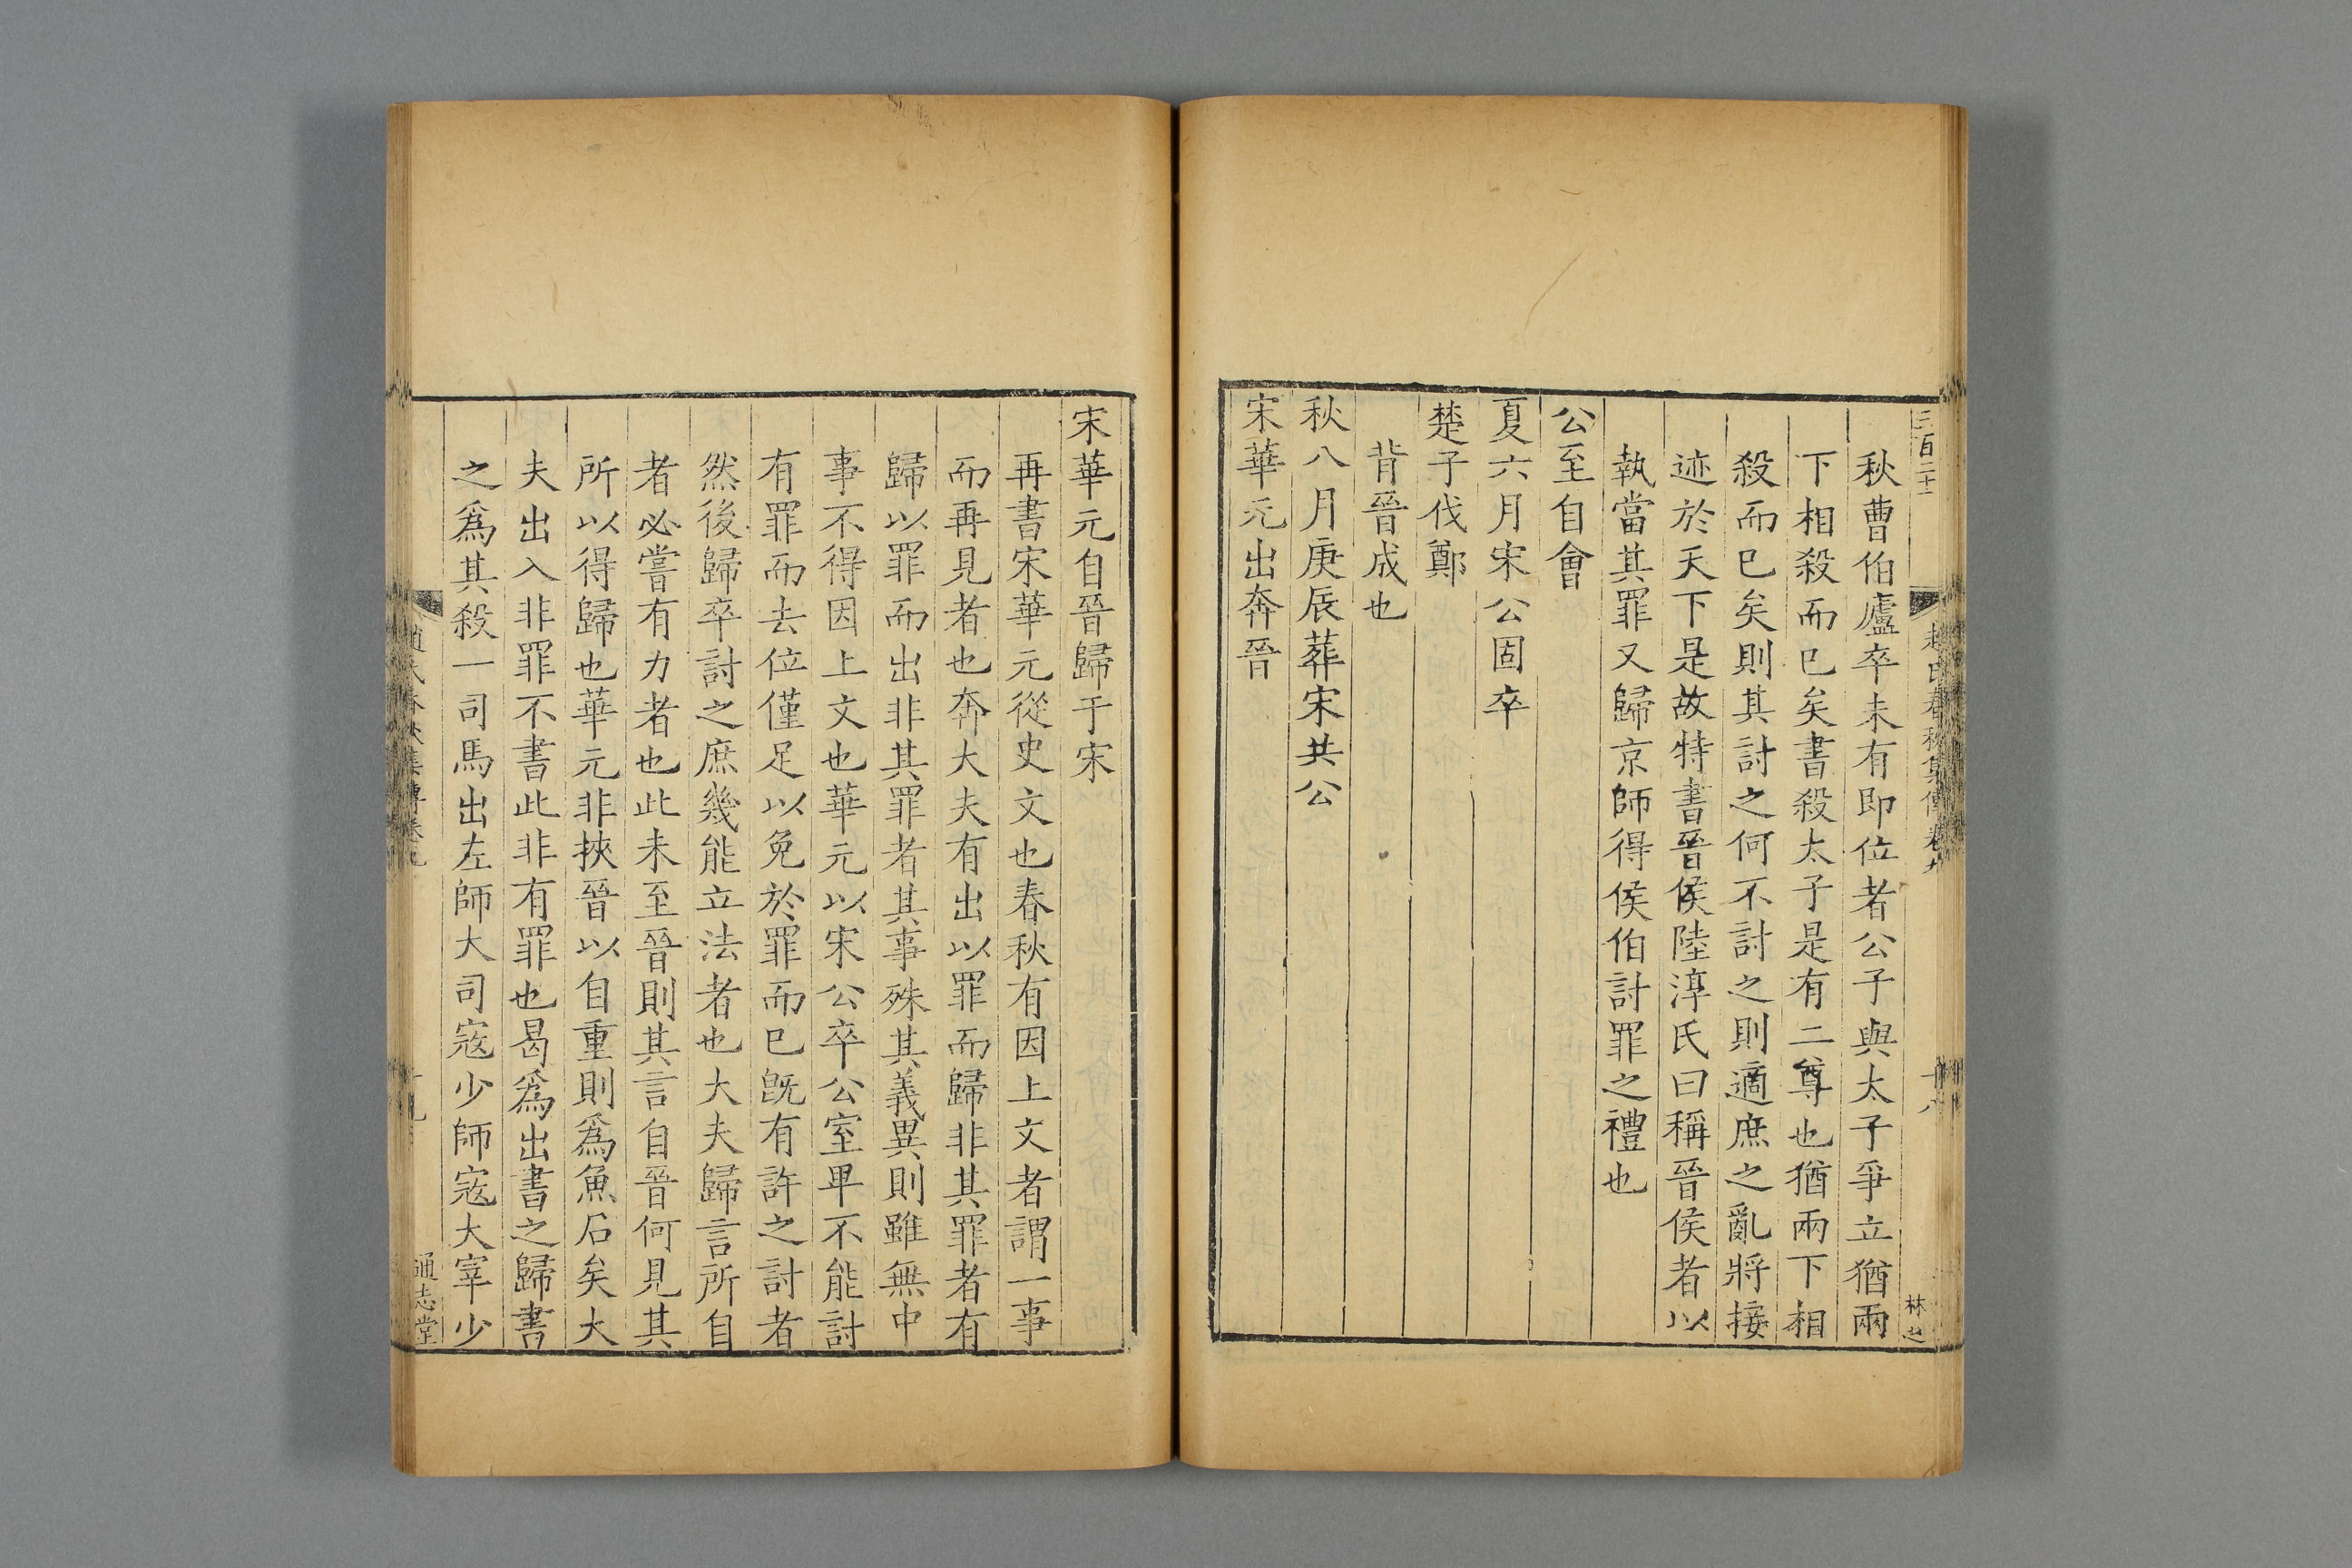 三百二十一
趙氏春秋集傳卷九
十八
林士
秋曹伯廬卒未有即位者公子與太子爭立猶兩
下相殺而已矣書殺太子是有二尊也猶兩下相
殺而已矣則其討之何不討之則適庶之亂將接
迹於天下是故特書晉侯陸淳氏曰稱晉侯者以
執當其罪又歸京師得侯伯討罪之禮也
公至自會
夏六月宋公固卒
楚子伐鄭
背晉成也
秋八月庚辰葬宋共公
宋華元出奔晉
宋華元自晉歸于宋
再書宋華元從史文也春秋有因上文者謂一事
而再見者也奔大夫有出以罪而歸非其罪者有
歸以罪而出非其罪者其事殊其義異則雖無中
事不得因上文也華元以宋公卒公室卑不能討
有罪而去位僅足以免於罪而已旣有許之討者
然後歸卒討之庶幾能立法者也大夫歸言所自
者必嘗有力者也此未至晉則其言自晉何見其
所以得歸也華元非挾晉以自重則爲魚石矣大
夫出入非罪不書此非有罪也曷爲出書之歸書
之爲其殺一司馬出左師大司寇少師寇大宰少
趙氏春秋集傳卷九
十九
通志堂